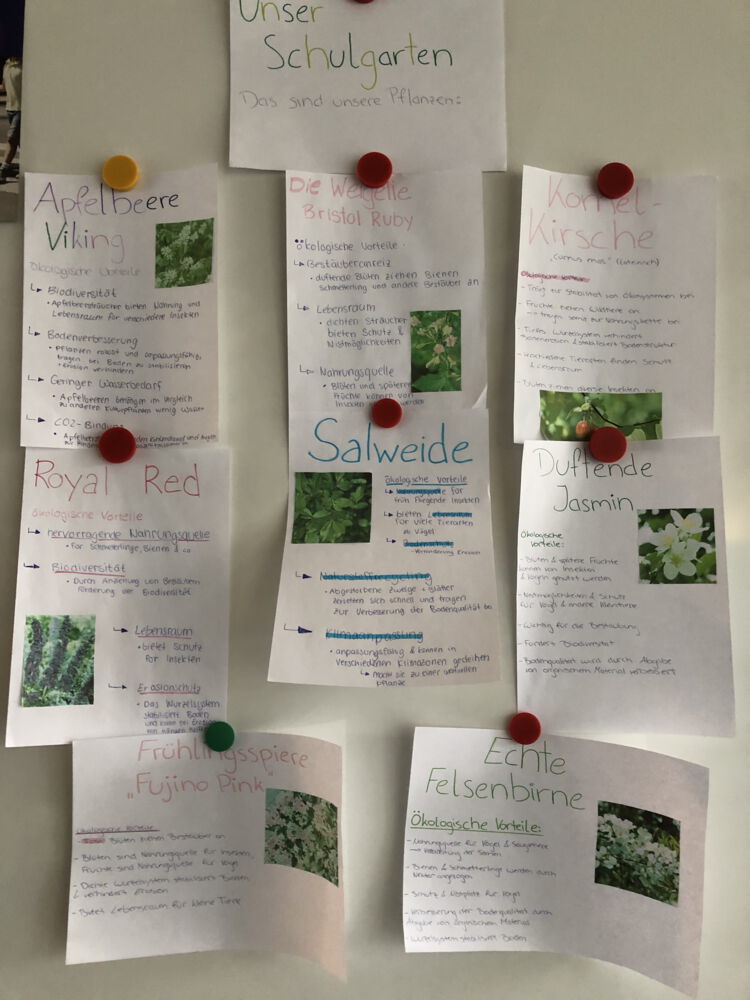 Unser
Schulgarten
Das sind unsere Pflanzen:
Apfelbeere
Viking
Ökologische Vorteile
Biodiversität
• Apfelbeersträucher bieten Nahrung und
Lebensraum für verschiedene Insekten
Bodenverbesserung
• Pflanzen robust und anpassungsfähig,
tragen bei Boden zu stabilisieren
• Erosion verhindern
Geringer Wasserbedarf
• Apfelbeeren benötigen im Vergleich
zu anderen Kulturpflanzen wenig Wasser
CO2-Bindung
Die Weigelie
Bristol Ruby
ökologische Vorteile:
Bestäuberanreiz
• duftende Blüten ziehen Bienen
Schmetterling und andere Bestäuber an
Lebensraum
• dichten Sträucher
bieten Schutz &
Nistmöglichkeiten
Nahrungsquelle
• Blüten und spätere
Früchte können von
Insekten werden
Kornel-
Kirsche
"Cornus mas" (Lateinisch)
Ökologische Vorteile:
- Trägt zur Stabilität von Ökosystemen bei
- Früchte ziehen Wildtiere an
→ tragen somit zur Nahrungskette bei
- Tiefes Wurzelsystem verhindert
Bodenerosion & stabilisiert Bodenstruktur
- Verschiedene Tierarten finden Schutz
& Lebensraum
- Blüten ziehen diverse Insekten an
Royal Red
ökologische Vorteile
hervorragende Nahrungsquelle
• für Schmetterlinge, Bienen & co
Biodiversität
• Durch Anziehung von Bestäubern
Förderung der Biodiversität
Lebensraum
• bietet Schutz
für Insekten
Erosionschutz
• Das Wurzelsystem
stabilisiert Boden
und kann bei Erosion
Salweide
ökologische Vorteile
Nahrungsquelle für
früh fliegende Insekten
bieten Lebensraum
für viele Tierarten
z.B. Vögel
Bodenschutz
- Verminderung Erosion
Naturstoffrecycling
• Abgestorbene Zweige & Blätter
zersetzen sich schnell und tragen
zur Verbesserung der Bodenqualität bei
Klimaanpassung
• anpassungsfähig & können in
verschiedenen Klimazonen gedeihen
macht sie zu einer wertvollen
Pflanze
Duftende
Jasmin
Ökologische
Vorteile:
- Blüten & spätere Früchte
können von Insekten
& Vögeln genutzt werden
- Nistmöglichkeiten & Schutz
für Vögel & andere Kleintiere
- Wichtig für die Bestäubung
- Fördert Biodiversität
- Bodenqualität wird durch Abgabe
von organischem Material verbessert
Frühlingsspiere
"Fujino Pink"
ökologische Vorteile
Blüten ziehen Bestäuber an
- Blüten sind Nahrungsquelle für Insekten,
Früchte sind Nahrungsquelle für Vögel
- Dichte Wurzelsystem stabilisiert Boden
& verhindert Erosion
- Bietet Lebensraum für kleine Tiere
Echte
Felsenbirne
Ökologische Vorteile:
- Nahrungsquelle für Vögel & Säugetiere
→ Verbreitung der Samen
- Bienen & Schmetterlinge werden durch
Nektar angezogen
- Schutz & Nistplätze für Vögel
- Verbesserung der Bodenqualität durch
Abgabe von organischem Material
- Wurzelsystem stabilisiert Boden